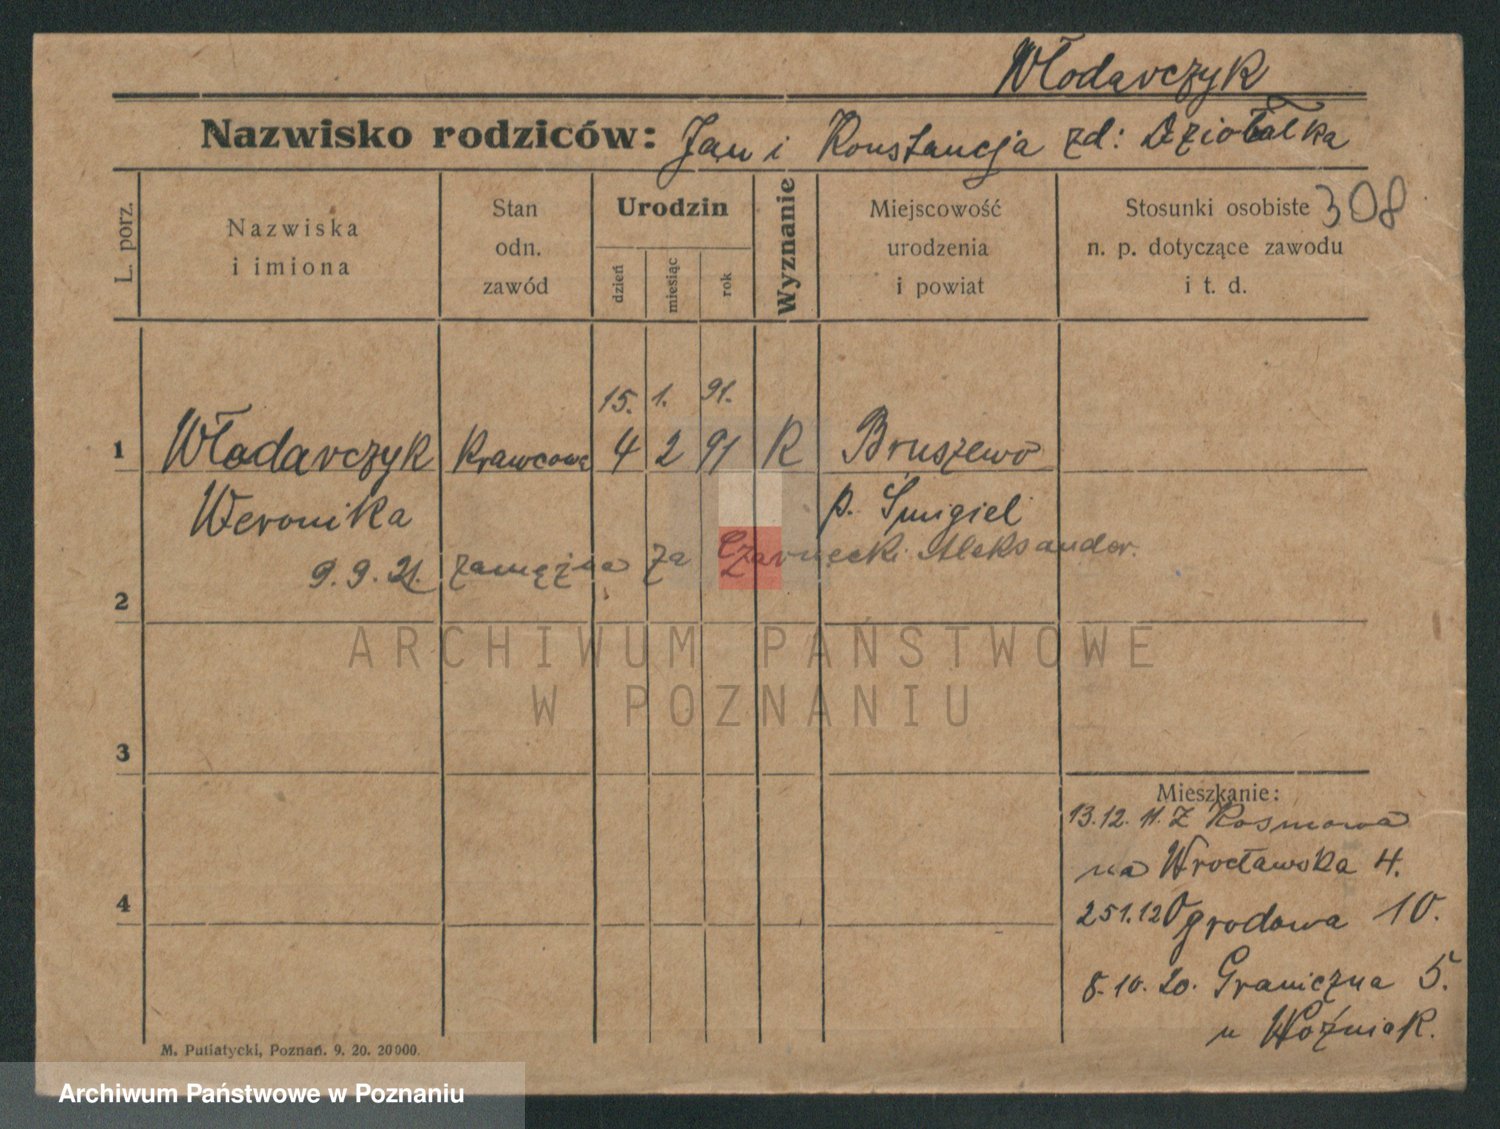 Włodarczyk
Nazwisko rodziców: Jan i Konstancja zd: Dziołalka
L. porz.
Nazwiska
i imiona
Stan
odn.
zawód
Urodzin
dzień
miesiąc
rok
Wyznanie
Miejscowość
urodzenia
i powiat
Stosunki osobiste
n. p. dotyczące zawodu
i t. d.
308
15. 1. 91.
1 Włodarczyk Krawcowa 4 2 91 R Bruszewo
Weronika p. Śmigiel
9.9.21. zamężna za Czarnecki Aleksander.
2
3
4
ARCHIWUM PAŃSTWOWE
W POZNANIU
Mieszkanie:
13.12.11. Z Kosmowa
na Wrocławska 4.
251.12 Ogrodowa 10.
8.10.20. Graniczna 5.
u Woźniak.
M. Putiatycki, Poznań. 9. 20. 20000.
Archiwum Państwowe w Poznaniu